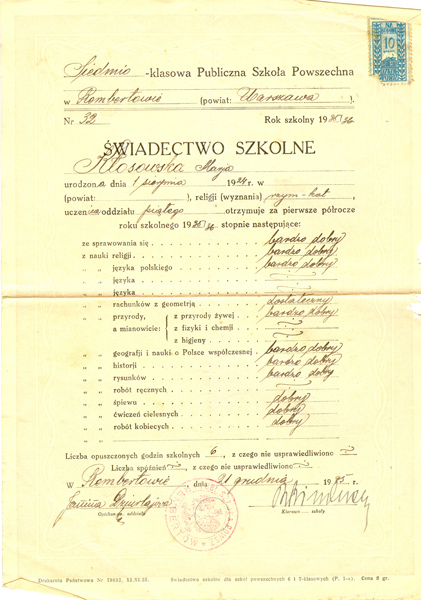 10
Siedmio -klasowa Publiczna Szkoła Powszechna
w Rembertowie (powiat: Warszawa ).
Nr 32 Rok szkolny 1935/36
ŚWIADECTWO SZKOLNE
Kłosowska Marja
urodzona dnia 1 sierpnia 1924 r. w
(powiat: ), religji (wyznania) rzym-kat
uczenica oddziału piątego otrzymuje za pierwsze półrocze
roku szkolnego 1935/36 stopnie następujące:
ze sprawowania się bardzo dobry
z nauki religji bardzo dobry
„ „ języka polskiego bardzo dobry
„ „ języka
„ „ języka
„ „ rachunków z geometrją dostateczny
„ „ przyrody, z przyrody żywej bardzo dobry
a mianowicie: z fizyki i chemji
z higjeny
„ „ geografji i nauki o Polsce współczesnej bardzo dobry
„ „ historji bardzo dobry
„ „ rysunków bardzo dobry
„ „ robót ręcznych
„ „ śpiewu dobry
„ „ ćwiczeń cielesnych dobry
„ „ robót kobiecych dobry
„ „
Liczba opuszczonych godzin szkolnych 6, z czego nie usprawiedliwiono
Liczba spóźnień, z czego nie usprawiedliwiono
w Rembertowie, dnia 21 grudnia 1935 r.
Opiekun oddziału Kierown. szkoły
Drukarnia Państwowa Nr 78632. 12.VI.35. Świadectwo szkolne dla szkół powszechnych 6 i 7-klasowych (P. 1-a). Cena 8 gr.